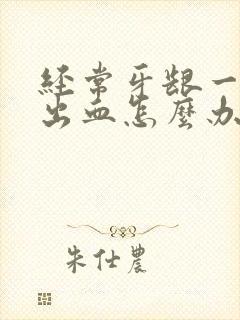 经常牙龈一
出血怎麼办
朱仕農